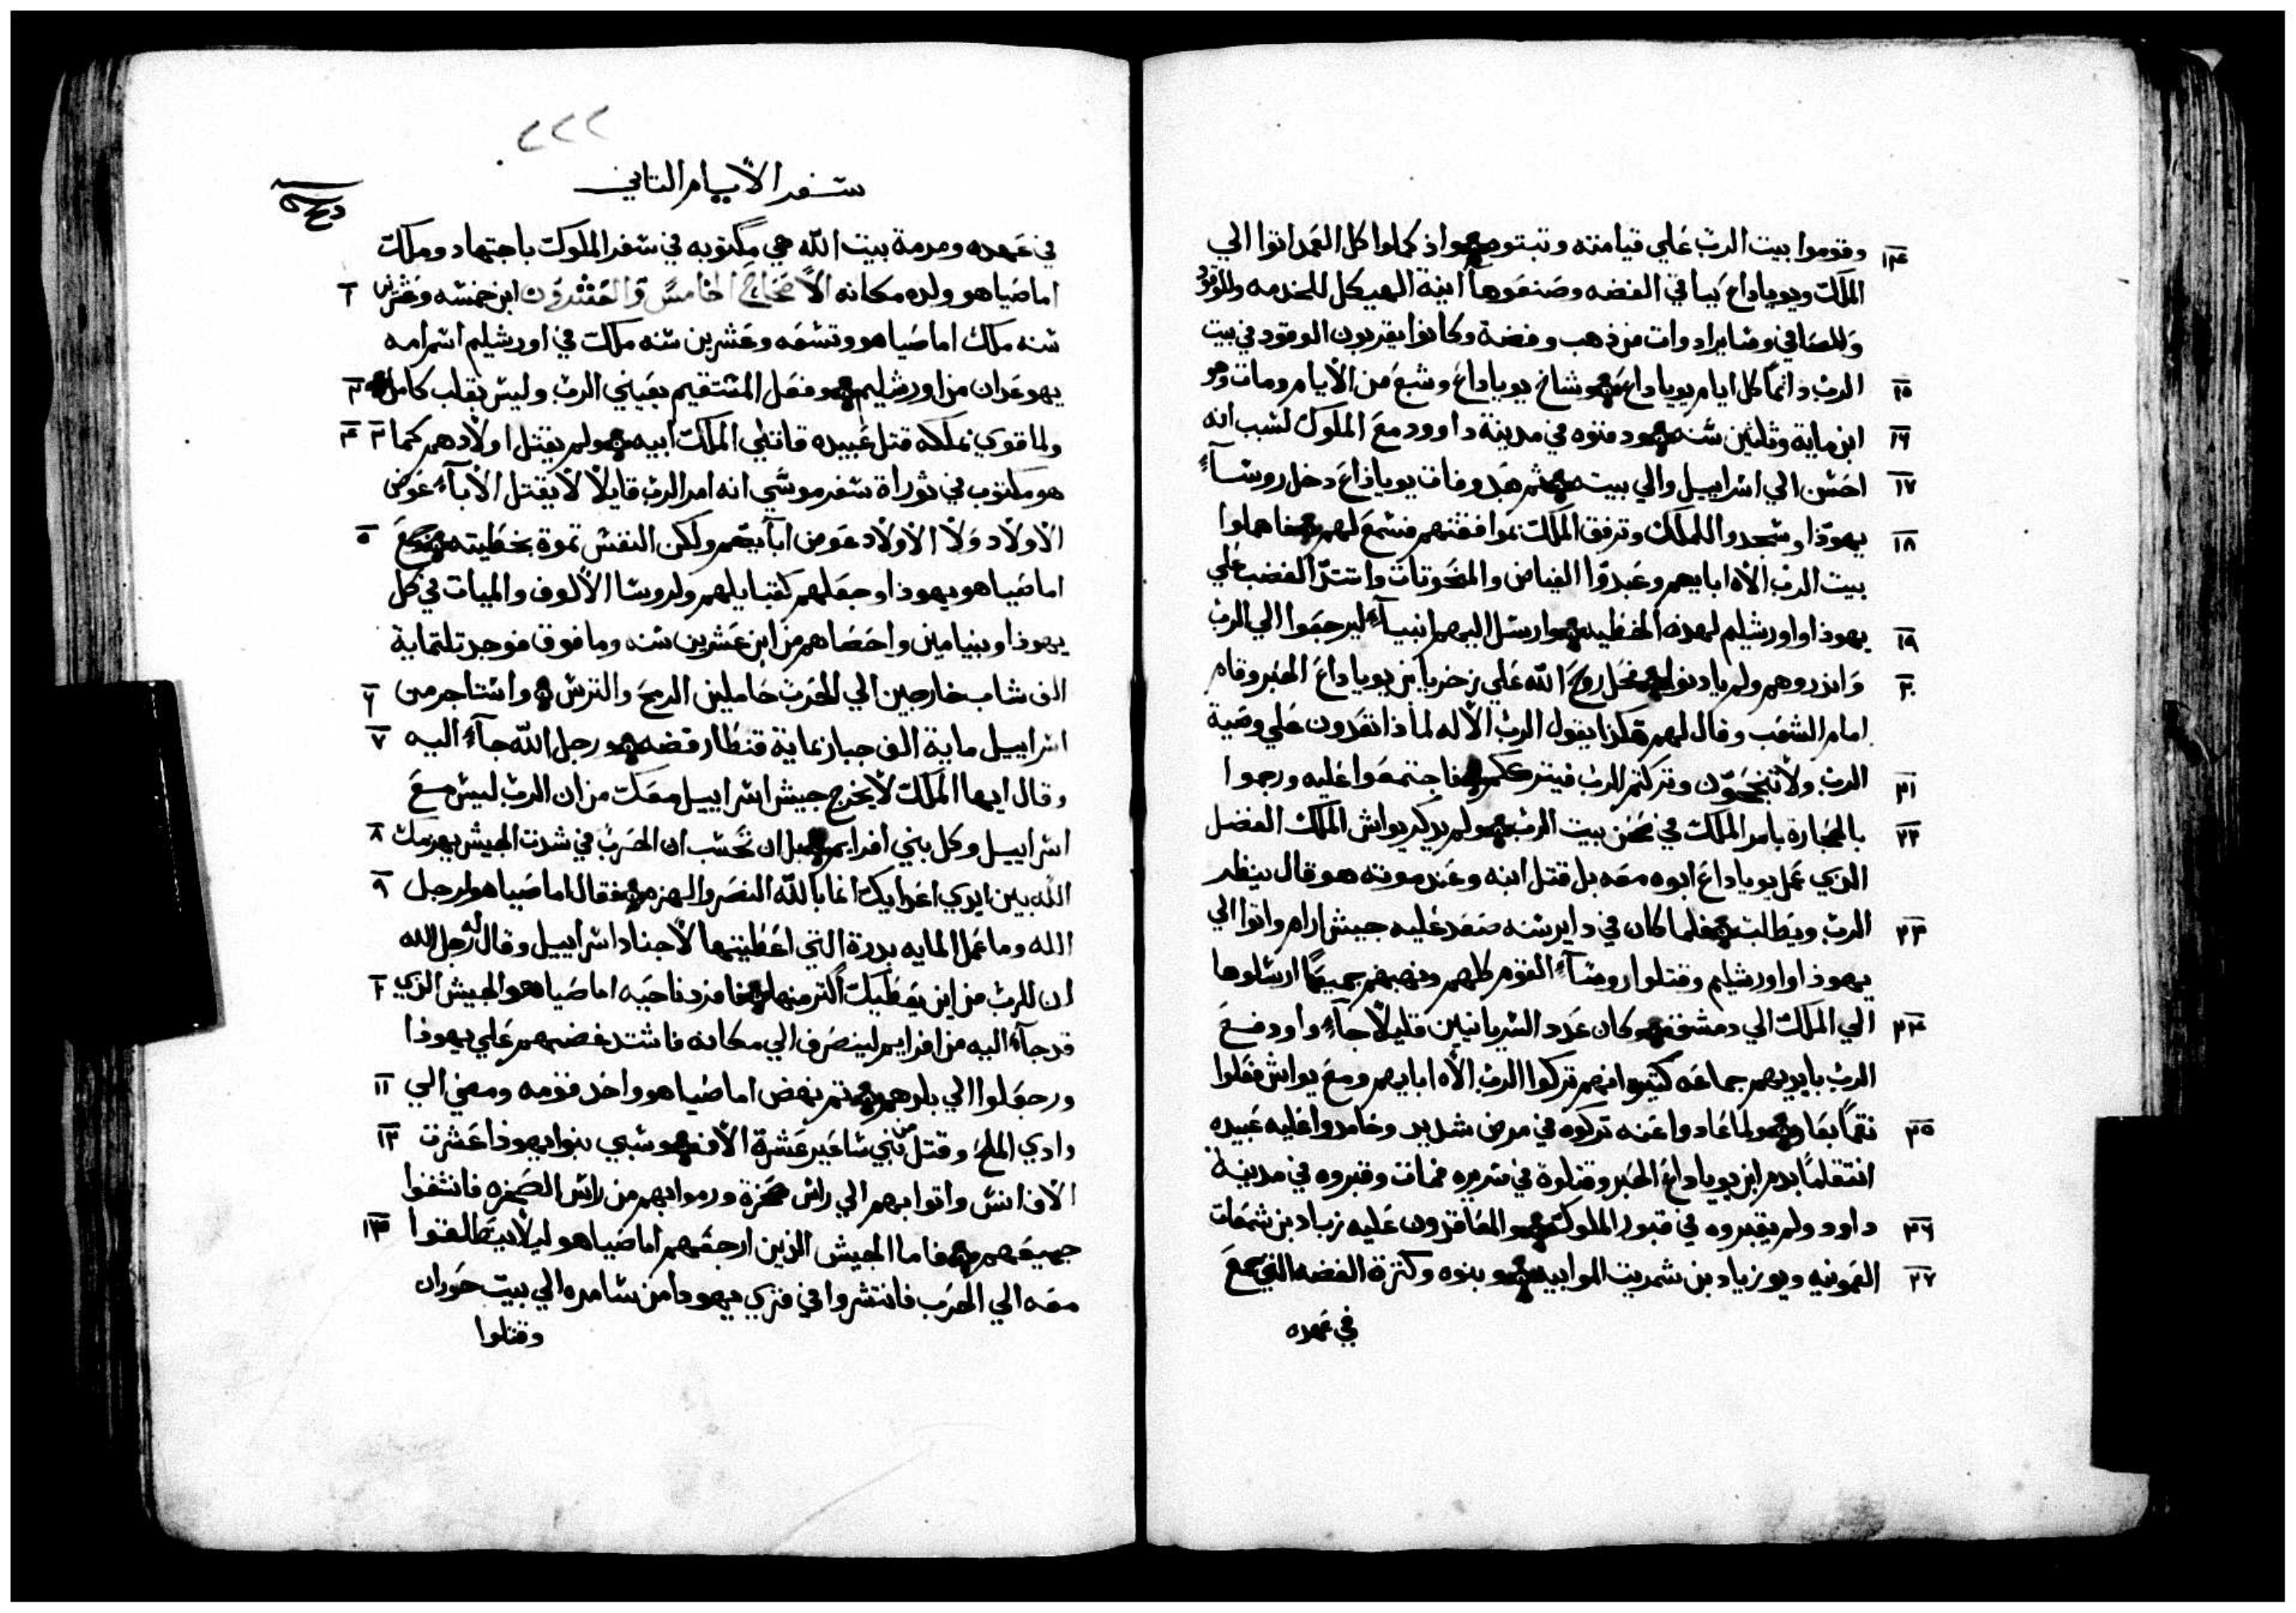 ١٤ وقوموا بيت الرب علي قيامته وتبتوه واذ كملوا كل العمل اتوا الي
الملك ويوياداع بباقي الفضه وصنعوها انية الهيكل للخدمه وللوقود
وللصافي وساير ادوات من ذهب وفضة وكانوا يقربون الوقود في بيت
١٥ الرب دائماً كل ايام يوياداع وشاخ يوياداع وشبع من الايام ومات وهو
١٦ ابن ماية وثلثين سنه ودفنوه في مدينة داوود مع الملوك لسبب انه
١٧ احسن الي اسراييل والي بيته ثم بعد وفات يوياداع دخل روسآء
١٨ يهوذا وسجدوا للملك وترفق الملك بموافقتهم فسمع لهم فاهملوا
بيت الرب الاه ابايهم وعبدوا الفياض والمنحوتات واشتد الغضب علي
١٩ يهوذا واورشليم لهذه الخطيه وارسل اليهم انبيآء ليرجعوا الي الرب
٢٠ وانذروهم ولم يادنوا فحل روح الله علي زخريا بن يوياداع الحبر وقام
امام الشعب وقال لهم هكذا يقول الرب الاله لماذا تتعدون علي وصية
٢١ الرب ولا تنجحون وتركتم الرب فيترككم فاجتمعوا عليه ورجموا
٢٢ بالحجاره بامر الملك في صحن بيت الرب ولم يدكر يواش الملك الفضل
الذي عمل يوياداع ابوه معه بل قتل ابنه وعند موته هو قال ينظر
٢٣ الرب ويطالب فلما كان في داير سنه صعد عليه جيش ارام واتوا الي
يهوذا واورشليم وقتلوا روسآء القوم كلهم ونهبهم جميعاً ارسلوها
٢٤ الي الملك الي دمشق وكان عدد السريانيين قليلاً جآء واودفع
الرب بايديهم جماعه كثيره انهم تركوا الرب الاه ابايهم ومع يواش فعلوا
٢٥ نقماً ولما عادوا عنه تركوه في مرض شديد وخامدوا عليه عبيده
انتقاماً بدم ابن يوياداع الحبر وقتلوه في سريره فمات وقبروه في مدينة
٢٦ داود ولم يقبروه في قبور الملوك والمعاقدون عليه زباد بن شمعات
٢٧ العمونيه ويوزباد بن شمريت الموابيه وبنوه وكترة الفضه التي جمع
في عهده
٢٢٢
سفر الايام التاني
في عهده ومرمة بيت الله هي مكتوبه في سفر الملوك باجتهاد وملك
اماصياهو ولده مكانه الاصحاح الخامس والعشرون ١ ابن خمسه وعشرين
سنه ملك اماصياهو وتسعه وعشرين سنه ملك في اورشليم اسم امه
يهوعدان من اورشليم ٢ وفعل المستقيم بعيني الرب وليس بقلب كامل
٣ ولما قوي بملكه قتل عبيده قاتلي الملك ابيه ٤ ولم يقتل اولادهم كما
هو مكتوب في توراة سفر موسي انه امر الرب قايلاً لا يقتل الابآء عوض
الاولاد ولا الاولاد عوض ابآيهم ولكن النفس تموة بخطيته ٥ وجمع
اماصياهو يهوذا وجعلهم كقبايلهم ولروسا الالوف والميات في كل
يهوذا وبنيامين واحصاهم من ابن عشرين سنه وما فوق فوجد تلتماية
الف شاب خارجين الي الحرب حاملين الرمح والترس ٦ واستاجر من
اسراييل ماية الف جبار بماية قنطار فضه ٧ ورجل الله جآء اليه
وقال ايها الملك لا يخرج جيش اسراييل معك من ان الرب ليس مع
اسراييل وكل بني افرايم ٨ بل ان تحسب ان الحرب في شدت الجيش يهزمك
الله بين ايدي اعدايك انما بالله النصر والهزم ٩ فقال اماصياهو لرجل
الله وما عمل الماية بدرة التي اعطيتها لاجناد اسراييل وقال له رجل الله
ان للرب من اين يعطيك اكتر منها ١٠ فافرد ناحيه اماصياهو الجيش الذي
قد جآء اليه من افرايم لينصرف الي مكانه فاشتد غضبهم علي يهوذا
ورجعلوا الي بلدهم ١١ تم نهض اماصياهو واخد قومه ومضي الي
وادي الملح وقتل من بني ساعير عشرة الاف ١٢ وسبي بنوا يهوذا عشرت
الاف انس واتوا بهم الي راس صخرة ورموا بهم من راس الصخره فانشقوا
جميعهم ١٣ فاما الجيش الذين ارجعهم اماصياهو ليلا ينطالقوا
معه الي الحرب فانتشروا في قري يهودا من شامره الي بيت حوران
وقتلوا